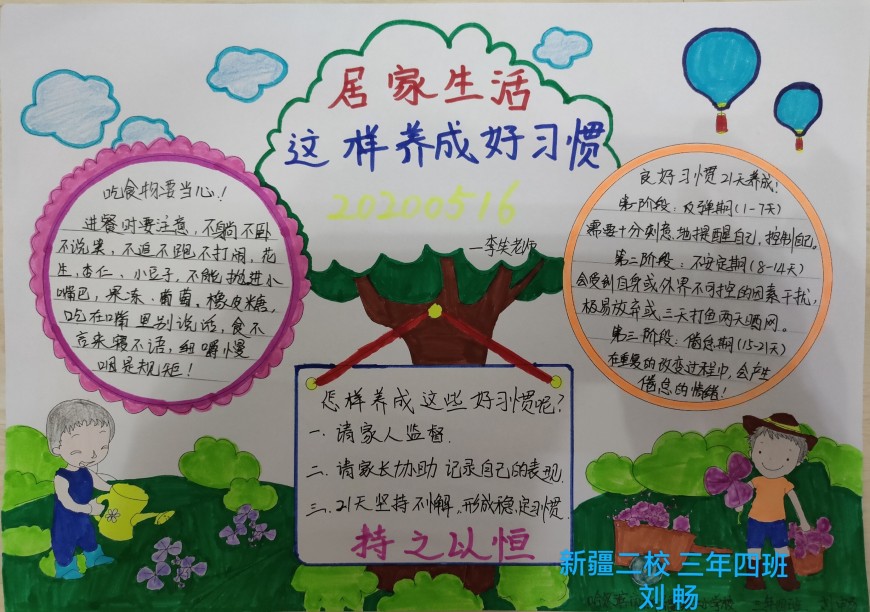 居家生活
这样养成好习惯
20200516
吃食物要当心！
进餐时要注意，不躺不卧
不说笑，不追不跑不打闹，花
生，杏仁、小豆子，不能抛进小
嘴巴，果冻、葡萄，橡皮糖，
吃在嘴里别说话，食不
言来寝不语，细嚼慢
咽是规矩！
良好习惯21天养成！
第一阶段：反弹期(1-7天)
需要十分刻意地提醒自己，控制自己。
第二阶段：不安定期(8-14天)
会受到自身或外界不可控的因素干扰，
极易放弃或三天打鱼两天晒网。
第三阶段：倦怠期(15-21天)
在重复的改变过程中，会产生
倦怠的情绪！
怎样养成这些好习惯呢？
一. 请家人监督.
二. 请家长协助记录自己的表现.
三. 21天坚持不懈，形成稳定习惯.
持之以恒
新疆二校 三年四班
刘畅